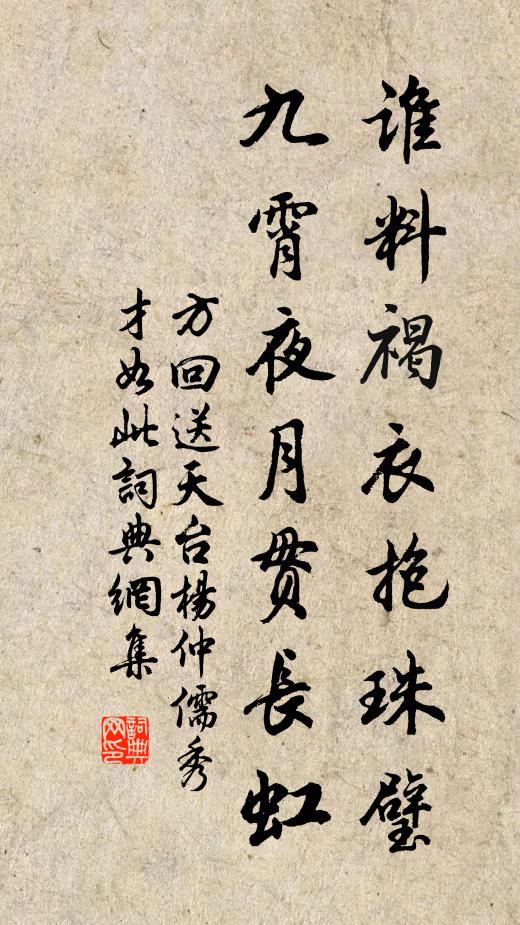 谁料褐衣抱珠璧
九霄夜月贯長虹
方回送天台楊仲儒秀
才如此詞典網集
詞典
网印